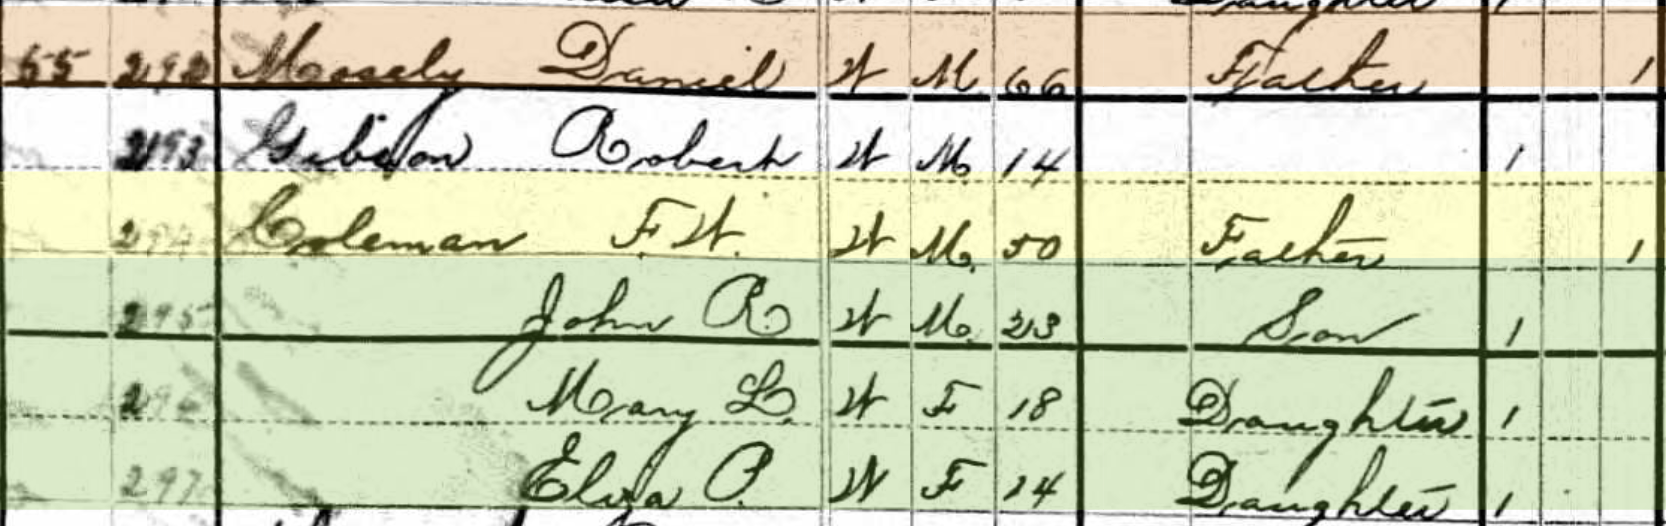 Daughter 1
55 292 Mosely Daniel W M 66 Father 1
293 Gibson Robert W M 14 1
294 Coleman F. W. W M 50 Father 1
295 John R. W M 23 Son 1
296 Mary L. W F 18 Daughter 1
297 Eliza P. W F 14 Daughter 1